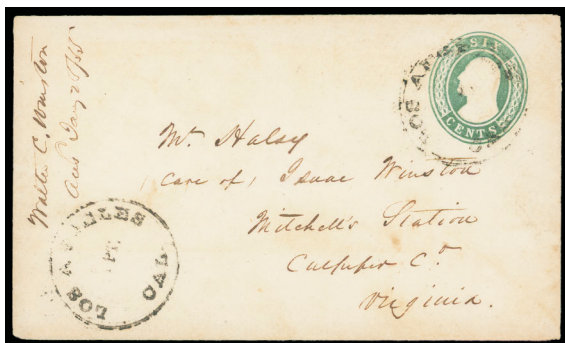 Walter C. Winston
SIX
CENTS
LOS ANGELES
CAL
Mr. Halsy
Care of, Isaac Winston
Mitchell's Station
Culpeper Co
Virginia.
LOS ANGELES
CAL